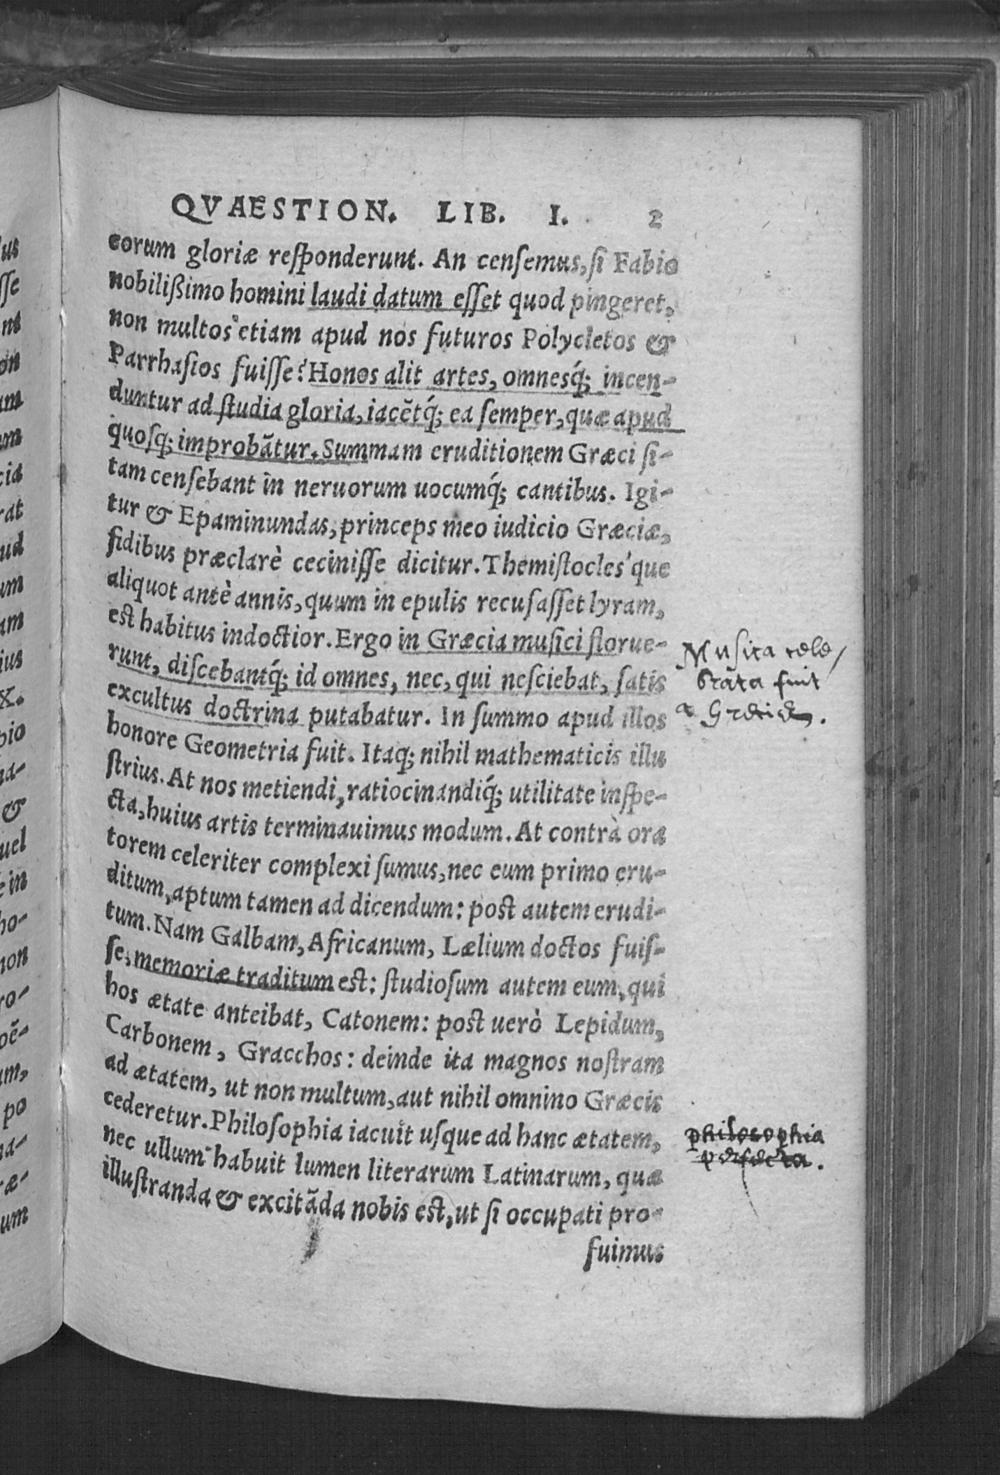 QVAESTION. LIB. I. 2
eorum gloriæ responderunt. An censemus, si Fabio
nobilißimo homini laudi datum esset quod pingeret,
non multos etiam apud nos futuros Polycletos &
Parrhasios fuisse? Honos alit artes, omnesq́; incen-
duntur ad studia gloria, iacẽtq́; ea semper, quæ apud
quosq; improbãtur. Summam eruditionem Græci si-
tam censebant in neruorum uocumq́; cantibus. Igi-
tur & Epaminundas, princeps meo iudicio Græciæ,
fidibus præclarè cecinisse dicitur. Themistocles'que
aliquot antè annis, quum in epulis recusasset lyram,
est habitus indoctior. Ergo in Græcia musici florue-
runt, discebantq́; id omnes, nec, qui nesciebat, satis
excultus doctrina putabatur. In summo apud illos
honore Geometria fuit. Itaq; nihil mathematicis illu
strius. At nos metiendi, ratiocinandiq́; utilitate inspe-
cta, huius artis terminauimus modum. At contrà ora
torem celeriter complexi sumus, nec eum primo eru-
ditum, aptum tamen ad dicendum: post autem erudi-
tum. Nam Galbam, Africanum, Lælium doctos fuis-
se, memoriæ traditum est: studiosum autem eum, qui
hos ætate anteibat, Catonem: post uerò Lepidum,
Carbonem, Gracchos: deinde ita magnos nostram
ad ætatem, ut non multum, aut nihil omnino Græcis
cederetur. Philosophia iacuit usque ad hanc ætatem,
nec ullum habuit lumen literarum Latinarum, quæ
illustranda & excitãda nobis est, ut si occupati pro-
fuimus
Musica cele
brãta fuit
a Græcis.
philosophia
us
sse
nt
on
am
um
cia
rat
ud
um
am
ius
x.
pio
na-
&
uel
in
ho-
non
ro-
oẽ-
um,
po
na-
ræ-
um